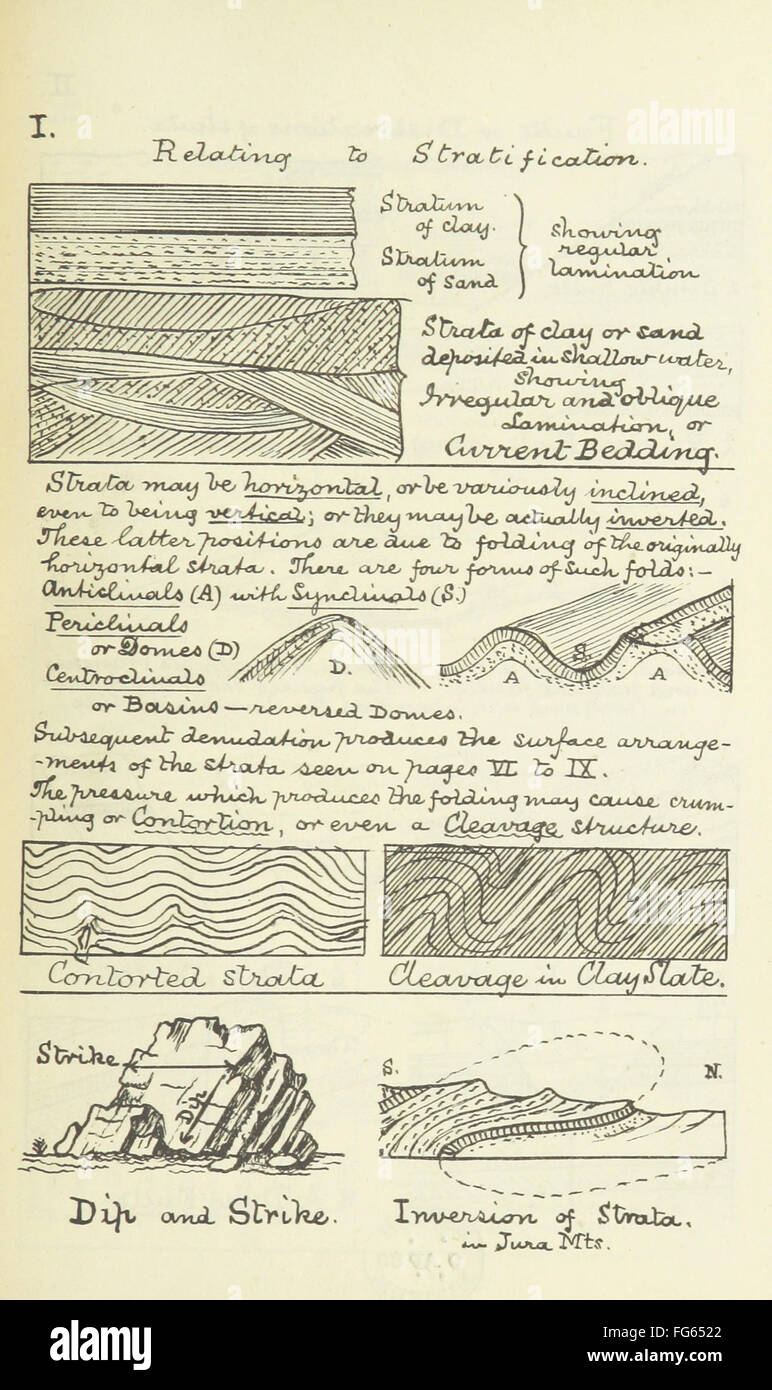 I.
Relating to Stratification.
Stratum
of clay.
Stratum
of sand
showing
regular
lamination
Strata of clay or sand
deposited in shallow water,
showing
Irregular and oblique
Lamination, or
Current Bedding.
Strata may be horizontal, or be variously inclined,
even to being vertical; or they may be actually inverted.
These latter positions are due to folding of the originally
horizontal strata. There are four forms of such folds:-
Anticlinals (A) with Synclinals (S.)
Periclinals
or Domes (D)
Centroclinals
or Basins — reversed Domes.
D.
S.
A
A
Subsequent denudation produces the surface arrange-
-ments of the strata seen on pages VI to IX.
The pressure which produces the folding may cause crum-
-pling or Contortion, or even a Cleavage structure.
Contorted strata
Cleavage in Clay Slate.
Strike
Dip
Dip and Strike.
S.
N.
Inversion of Strata.
in Jura Mts.
alamy
alamy
alamy
alamy
a
a
a
a
alamy stock photo
FG6522
www.alamy.com